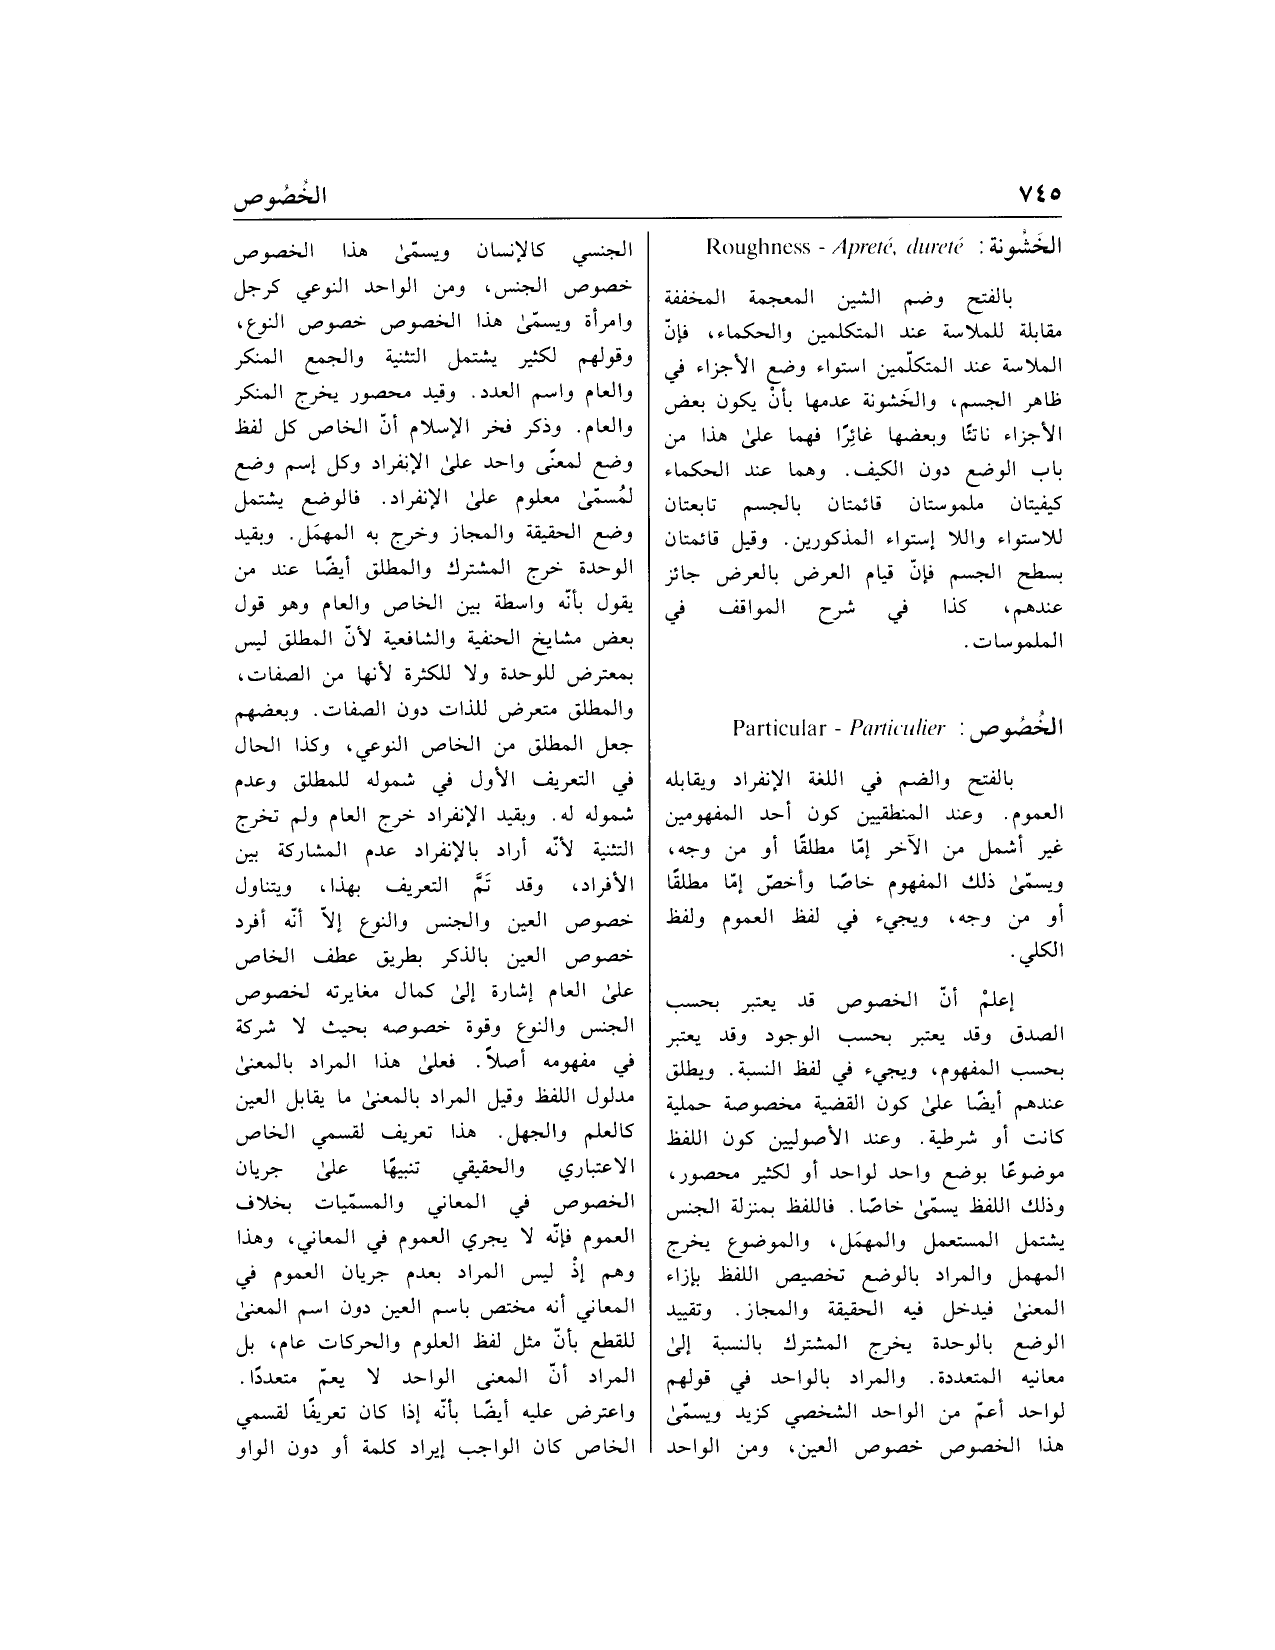 ٧٤٥
الخُصُوص
الخَشُونة : Roughness - Apreté, dureté
بالفتح وضم الشين المعجمة المخففة
مقابلة للملاسة عند المتكلمين والحكماء، فإنّ
الملاسة عند المتكلّمين استواء وضع الأجزاء في
ظاهر الجسم، والخَشونة عدمها بأنْ يكون بعض
الأجزاء ناتئًا وبعضها غائِرًا فهما علىٰ هذا من
باب الوضع دون الكيف. وهما عند الحكماء
كيفيتان ملموستان قائمتان بالجسم تابعتان
للاستواء واللا إستواء المذكورين. وقيل قائمتان
بسطح الجسم فإنّ قيام العرض بالعرض جائز
عندهم، كذا في شرح المواقف في
الملموسات.
الخُصُوص : Particular - Particulier
بالفتح والضم في اللغة الإنفراد ويقابله
العموم. وعند المنطقيين كون أحد المفهومين
غير أشمل من الآخر إمّا مطلقًا أو من وجه،
ويسمّىٰ ذلك المفهوم خاصًا وأخصّ إمّا مطلقًا
أو من وجه، ويجيء في لفظ العموم ولفظ
الكلي.
إعلمْ أنّ الخصوص قد يعتبر بحسب
الصدق وقد يعتبر بحسب الوجود وقد يعتبر
بحسب المفهوم، ويجيء في لفظ النسبة. ويطلق
عندهم أيضًا علىٰ كون القضية مخصوصة حملية
كانت أو شرطية. وعند الأصوليين كون اللفظ
موضوعًا بوضع واحد لواحد أو لكثير محصور،
وذلك اللفظ يسمّىٰ خاصًا. فاللفظ بمنزلة الجنس
يشتمل المستعمل والمهمَل، والموضوع يخرج
المهمل والمراد بالوضع تخصيص اللفظ بإزاء
المعنىٰ فيدخل فيه الحقيقة والمجاز. وتقييد
الوضع بالوحدة يخرج المشترك بالنسبة إلىٰ
معانيه المتعددة. والمراد بالواحد في قولهم
لواحد أعمّ من الواحد الشخصي كزيد ويسمّىٰ
هذا الخصوص خصوص العين، ومن الواحد
الجنسي كالإنسان ويسمّىٰ هذا الخصوص
خصوص الجنس، ومن الواحد النوعي كرجل
وامرأة ويسمّىٰ هذا الخصوص خصوص النوع،
وقولهم لكثير يشتمل التثنية والجمع المنكر
والعام واسم العدد. وقيد محصور يخرج المنكر
والعام. وذكر فخر الإسلام أنّ الخاص كل لفظ
وضع لمعنًى واحد علىٰ الإنفراد وكل إسم وضع
لمُسمّىٰ معلوم علىٰ الإنفراد. فالوضع يشتمل
وضع الحقيقة والمجاز وخرج به المهمَل. وبقيد
الوحدة خرج المشترك والمطلق أيضًا عند من
يقول بأنّه واسطة بين الخاص والعام وهو قول
بعض مشايخ الحنفية والشافعية لأنّ المطلق ليس
بمعترض للوحدة ولا للكثرة لأنها من الصفات،
والمطلق متعرض للذات دون الصفات. وبعضهم
جعل المطلق من الخاص النوعي، وكذا الحال
في التعريف الأول في شموله للمطلق وعدم
شموله له. وبقيد الإنفراد خرج العام ولم تخرج
التثنية لأنّه أراد بالإنفراد عدم المشاركة بين
الأفراد، وقد تَمَّ التعريف بهذا، ويتناول
خصوص العين والجنس والنوع إلاّ أنّه أفرد
خصوص العين بالذكر بطريق عطف الخاص
علىٰ العام إشارة إلىٰ كمال مغايرته لخصوص
الجنس والنوع وقوة خصوصه بحيث لا شركة
في مفهومه أصلاً. فعلىٰ هذا المراد بالمعنىٰ
مدلول اللفظ وقيل المراد بالمعنىٰ ما يقابل العين
كالعلم والجهل. هذا تعريف لقسمي الخاص
الاعتباري والحقيقي تنبيهًا علىٰ جريان
الخصوص في المعاني والمسمّيات بخلاف
العموم فإنّه لا يجري العموم في المعاني، وهذا
وهم إذْ ليس المراد بعدم جريان العموم في
المعاني أنه مختص باسم العين دون اسم المعنىٰ
للقطع بأنّ مثل لفظ العلوم والحركات عام، بل
المراد أنّ المعنى الواحد لا يعمّ متعددًا.
واعترض عليه أيضًا بأنّه إذا كان تعريفًا لقسمي
الخاص كان الواجب إيراد كلمة أو دون الواو